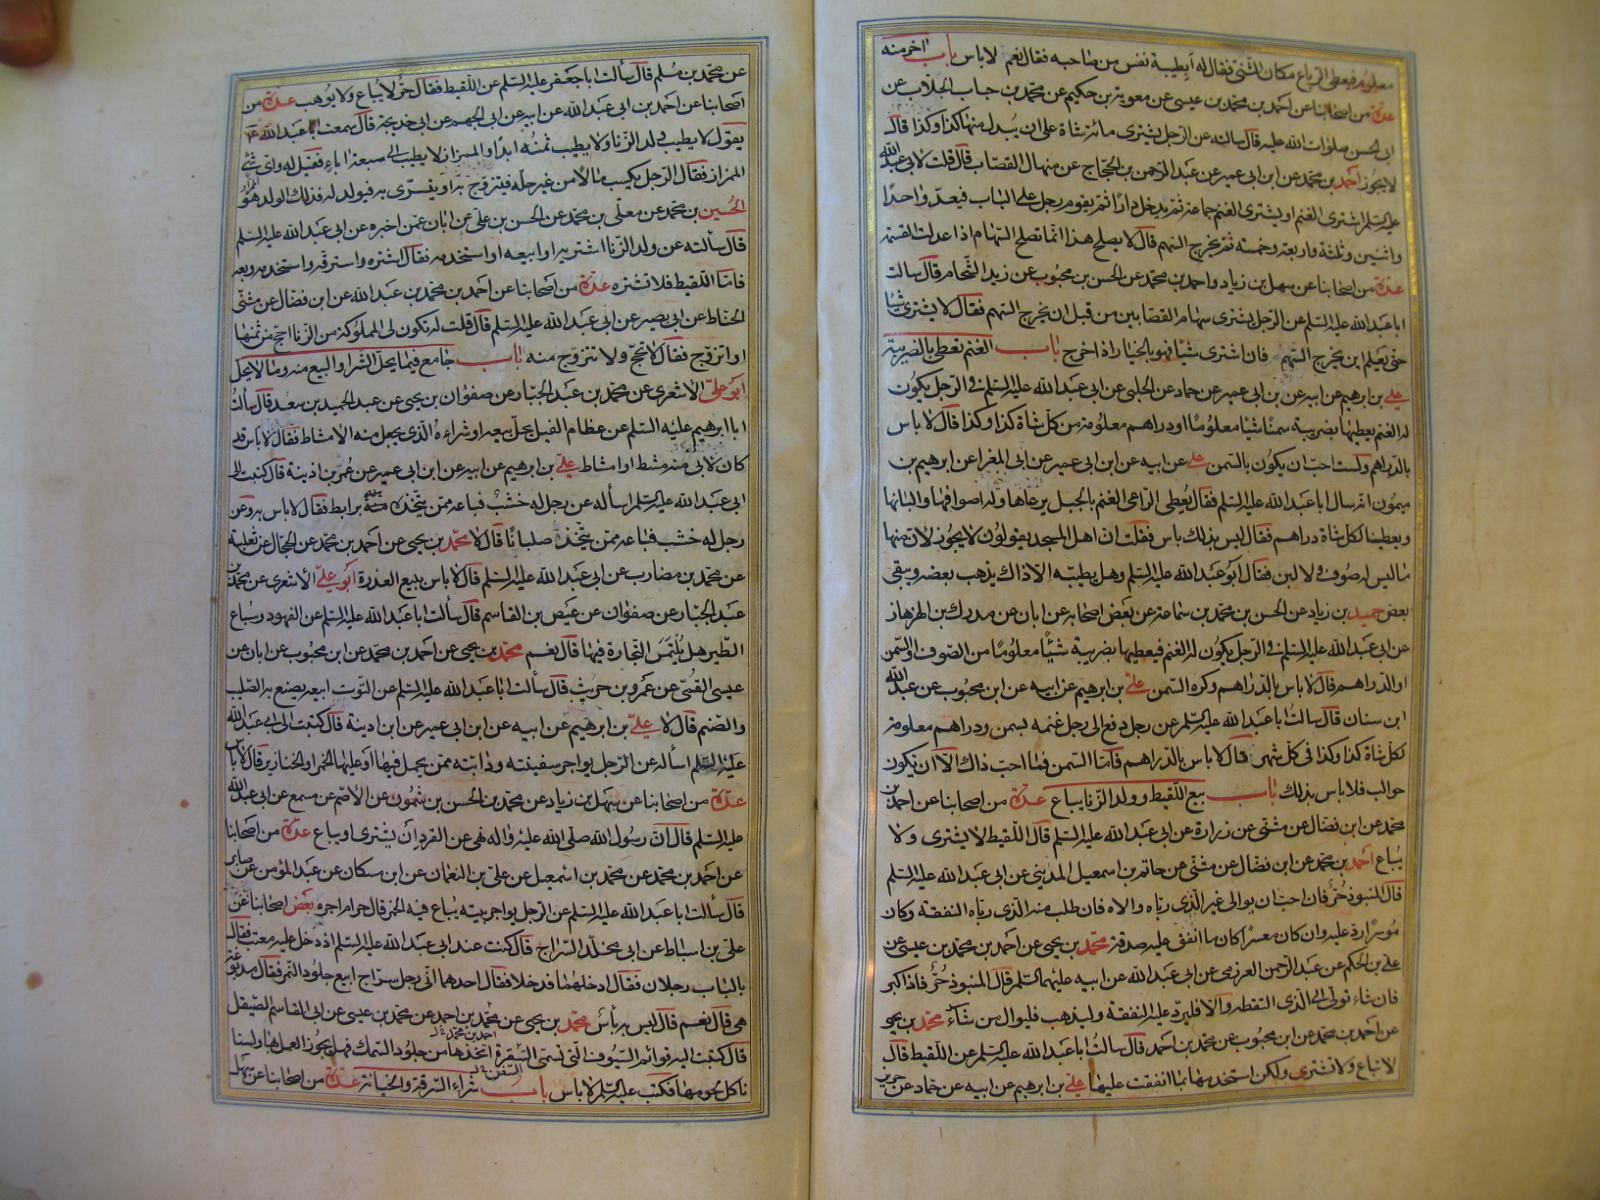 معلوم فيعطى الرباع مكان الثنى فقال له ابطيبة نفس من صاحبه فقال نعم لا باس باب اخر منه
عدة من اصحابنا عن احمد بن محمد بن عيسى عن معوية بن حكيم عن محمد بن حباب الجلاب عن
ابى الحسن صلوات الله عليه قال سالته عن الرجل يشترى مائة شاة على ان يبدل منها كذا وكذا قال
لا يجوز احمد بن محمد عن ابن ابى عمير عن عبد الرحمن بن الحجاج عن منهال القصاب قال قلت لابى عبد الله
عليه السلم اشترى الغنم او يشترى الغنم جماعة ثم يدخل دارا ثم يقوم رجل على الباب فيعد واحدا
واثنين وثلثة واربعة وخمسة ثم يخرج السهم قال لا يصلح هذا انما تصلح السهام اذا عدلت القسمة
عدة من اصحابنا عن سهل بن زياد واحمد بن محمد عن الحسن بن محبوب عن زيد الشحام قال سالت
ابا عبد الله عليه السلم عن الرجل يشترى سهام القصابين من قبل ان يخرج السهم فقال لا يشترى شيئا
حتى يعلم اين يخرج السهم فان اشترى شيئا فهو بالخيار اذا خرج باب الغنم تعطى بالضريبة
على بن ابرهيم عن ابيه عن بن ابى عمير عن حماد عن الحلبى عن ابى عبد الله عليه السلم فى الرجل يكون
له الغنم يعطيها بضريبة سمنا شيئا معلوما او دراهم معلومة من كل شاة كذا وكذا قال لا باس
بالدراهم ولست احب ان يكون بالسمن على عن ابيه عن ابن ابى عمير عن ابى المغرا عن ابرهيم بن
ميمون انه سال ابا عبد الله عليه السلم فقال يعطى الراعى الغنم بالجبل يرعاها وله اصوافها والبانها
ويعطينا لكل شاة دراهم فقال ليس بذلك باس فقلت ان اهل المسجد يقولون لا يجوز لان منها
ما ليس له صوف ولا لبن فقال ابو عبد الله عليه السلم وهل يطيبه الا ذاك يذهب بعضه ويبقى
بعض حميد بن زياد عن الحسن بن محمد بن سماعة عن بعض اصحابه عن ابان عن مدرك بن الهزهاز
عن ابى عبد الله عليه السلم فى الرجل يكون له الغنم فيعطيها بضريبة شيئا معلوما من الصوف والسمن
او الدراهم قال لا باس بالدراهم وكره السمن على بن ابرهيم عن ابيه عن ابن محبوب عن عبد الله
ابن سنان قال سالت ابا عبد الله عليه السلم عن رجل دفع الى رجل غنمه بسمن ودراهم معلومة
لكل شاة كذا وكذا فى كل شهر قال لا باس بالدراهم فاما السمن فما احب ذاك الا ان يكون
حوالب فلا باس بذلك باب بيع اللقيط وولد الزنا يباع عدة من اصحابنا عن احمد بن
محمد عن ابن فضال عن مثنى عن زرارة عن ابى عبد الله عليه السلم قال اللقيط لا يشترى ولا
يباع احمد بن محمد عن ابن فضال عن مثنى عن حاتم بن اسمعيل المدينى عن ابى عبد الله عليه السلم
قال المنبوذ حر فان احب ان يوالى غير الذى رباه والاه فان طلب منه الذى رباه النفقة وكان
موسرا رد عليه وان كان معسرا كان ما انفق عليه صدقة محمد بن يحيى عن احمد بن محمد بن عيسى عن
على بن الحكم عن عبد الرحمن العرزمى عن ابى عبد الله عن ابيه عليهما السلم قال المنبوذ حر فاذا كبر
فان شاء توالى الى الذى التقطه والا فليرد عليه النفقة وليذهب فليوال من شاء محمد بن يحيى
عن احمد بن محمد عن ابن محبوب عن محمد بن احمد قال سالت ابا عبد الله عليه السلم عن اللقيط قال
لا تباع ولا تشترى ولكن استخدمها بما انفقت عليها على بن ابرهيم عن ابيه عن حماد عن حريز
عن محمد بن مسلم قال سالت ابا جعفر عليه السلم عن اللقيط فقال حر لا يباع ولا يوهب عدة من
اصحابنا عن احمد بن ابى عبد الله عن ابيه عن ابى الجهم عن ابى خديجة قال سمعت ابا عبد الله ع
يقول لا يطيب ولد الزنا ولا يطيب ثمنه ابدا والممراز لا يطيب الى سبعة اباء فقيل له واى شئ
الممراز فقال الرجل يكسب مالا من غير حله فيتزوج به او يتسرى به فيولد له فذلك الولد هو الممراز
الحسين بن محمد عن معلى بن محمد عن الحسن بن على عن ابان عمن اخبره عن ابى عبد الله عليه السلم
قال سالته عن ولد الزنا اشتريه او ابيعه او استخدمه فقال اشتره واسترقه واستخدمه وبعه
فاما اللقيط فلا تشتره عدة من اصحابنا عن احمد بن محمد بن عبد الله عن ابن فضال عن مثنى
الحناط عن ابى بصير عن ابى عبد الله عليه السلم قال قلت له تكون لى المملوكة من الزنا احج من ثمنها
او اتزوج فقال لا تحج ولا تتزوج منه باب جامع فيما يحل الشراء والبيع منه وما لا يحل
ابو على الاشعرى عن محمد بن عبد الجبار عن صفوان بن يحيى عن عبد الحميد بن سعد قال سالت
ابا ابرهيم عليه السلم عن عظام الفيل يحل بيعه او شراءه الذى يجعل منه الامشاط فقال لا باس قد
كان لابى منه مشط او امشاط على بن ابرهيم عن ابيه عن ابن ابى عمير عن عمر بن اذينة قال كتبت الى
ابى عبد الله عليه السلم اساله عن رجل له خشب فباعه ممن يتخذه برابط فقال لا باس به وعن
رجل له خشب فباعه ممن يتخذه صلبانا قال لا محمد بن يحيى عن احمد بن محمد عن الحجال عن ثعلبة
عن محمد بن مضارب عن ابى عبد الله عليه السلم قال لا باس ببيع العذرة ابو على الاشعرى عن محمد بن
عبد الجبار عن صفوان عن عيص بن القاسم قال سالت ابا عبد الله عليه السلم عن الفهود وسباع
الطير هل يلتمس التجارة فيها قال نعم محمد بن يحيى عن احمد بن محمد عن ابن محبوب عن ابان عن
عيسى القمى عن عمرو بن حريث قال سالت ابا عبد الله عليه السلم عن التوت ابيعه يصنع به الصليب
والصنم قال لا على بن ابرهيم عن ابيه عن ابن ابى عمير عن ابن اذينة قال كتبت الى ابى عبد الله
عليه السلم اساله عن الرجل يواجر سفينته ودابته ممن يحمل فيها او عليها الخمر والخنازير قال لا باس
عدة من اصحابنا عن سهل بن زياد عن محمد بن الحسن بن شمون عن الاصم عن مسمع عن ابى عبد الله
عليه السلم قال ان رسول الله صلى الله عليه واله نهى عن القرد ان يشترى او يباع عدة من اصحابنا
عن احمد بن محمد عن محمد بن اسمعيل عن على بن النعمان عن ابن مسكان عن عبد المؤمن عن صابر
قال سالت ابا عبد الله عليه السلم عن الرجل يواجر بيته يباع فيه الخمر قال حرام اجره بعض اصحابنا عن
على بن اسباط عن ابى مخلد السراج قال كنت عند ابى عبد الله عليه السلم اذ دخل عليه معتب فقال
بالباب رجلان فقال ادخلهما فدخلا فقال احدهما انى رجل سراج ابيع جلود النمر فقال مدبوغة
هى قال نعم قال ليس به باس محمد بن يحيى عن محمد بن احمد عن محمد بن عيسى عن ابى القاسم الصيقل
قال كتبت اليه قوائم السيوف التى تسمى السفرة اتخذها من جلود السمك فهل يجوز العمل بها ولسنا
ناكل لحومها فكتب عليه السلم لا باس باب شراء السرقة والخيانة عدة من اصحابنا عن سهل